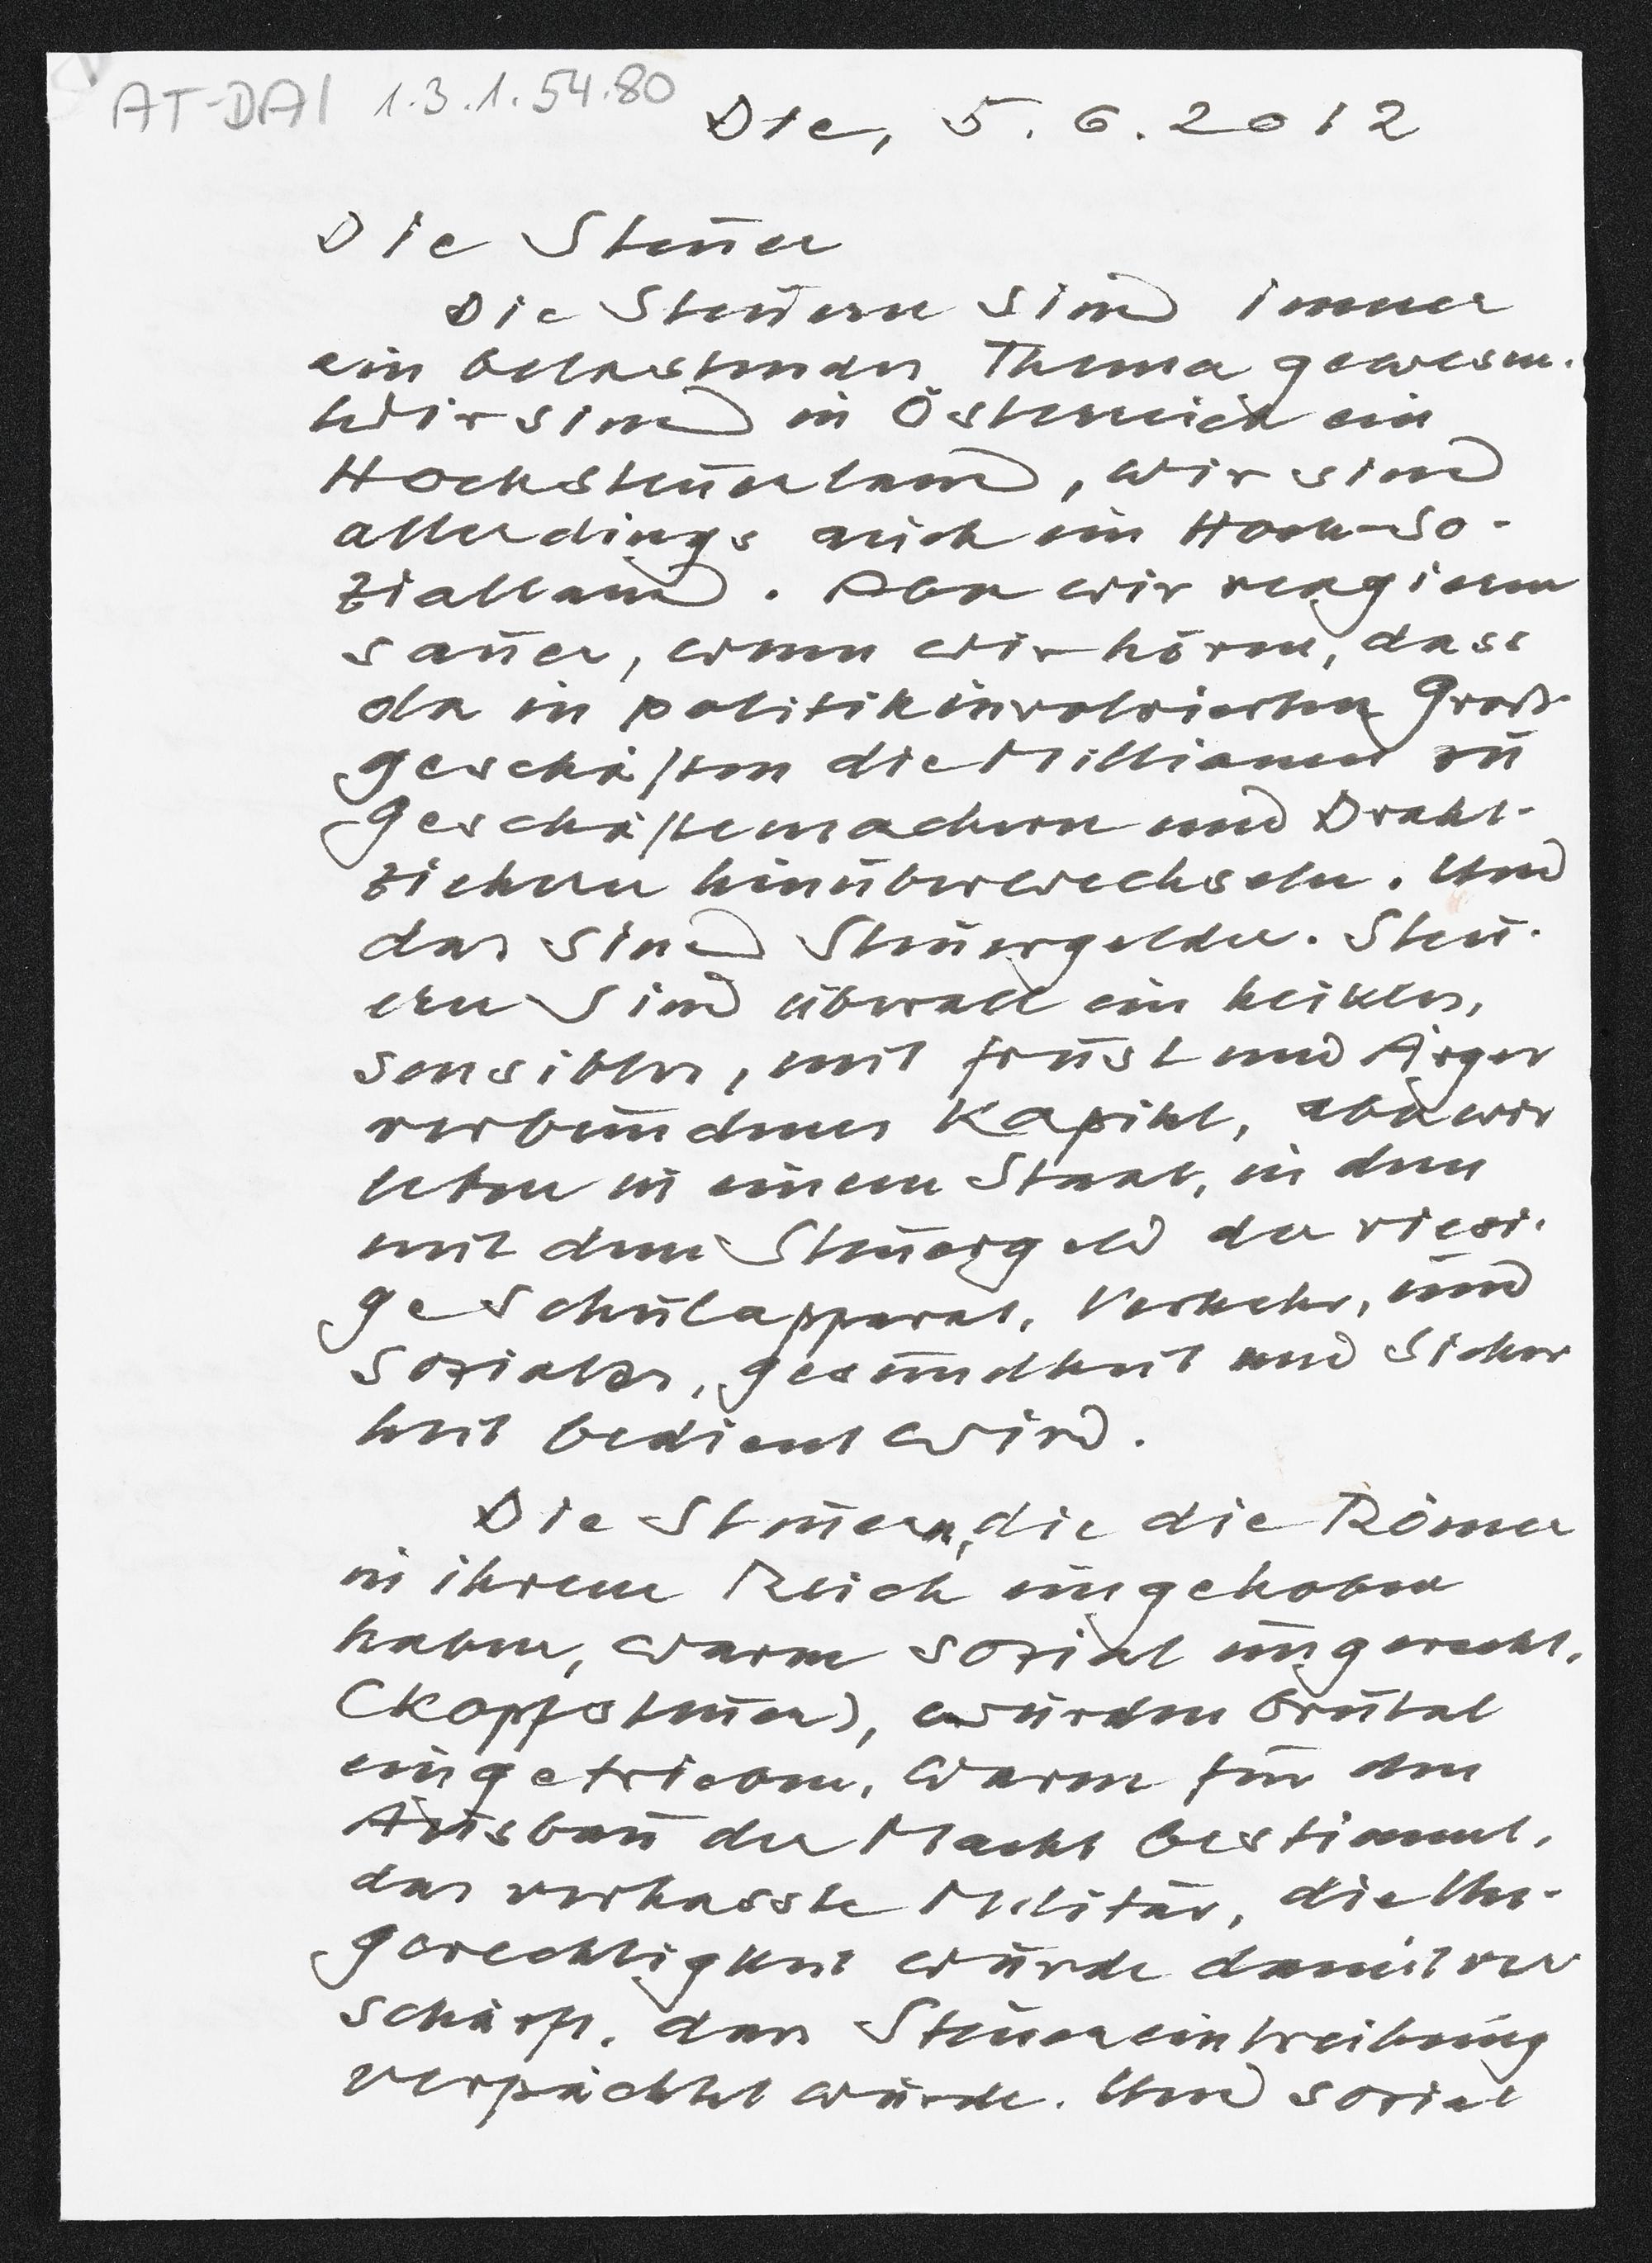 AT-DAI 1.3.1.54.80
Die, 5.6.2012
Die Steuer
Die Steuern sind immer
ein belastendes Thema gewesen.
Wir sind in Österreich ein
Hochsteuerland, wir sind
allerdings auch ein Hoch-So-
zialland. Aber wir reagieren
sauer, wenn wir hören, dass
da in politikinvolvierten Groß-
geschäften die Millionen zu
Geschäftemachern und Draht-
ziehern hinüberwechseln. Und
das sind Steuergelder. Steu-
ern sind überall ein heikles,
sensibles, mit Frust und Ärger
verbundenes Kapitel, aber wir
leben in einem Staat, in dem
mit dem Steuergeld der riesi-
ge Schulapparat, Verkehr, und
Soziales, Gesundheit und Sicher
heit bedient wird.
Die Steuern, die die Römer
in ihrem Reich eingehoben
haben, waren sozial ungerecht,
(Kopfsteuer), wurden brutal
eingetrieben, waren für den
Ausbau der Macht bestimmt,
das verhasste Militär, die Un-
gerechtigkeit wurde damit ver
schärft, dass Steuereintreibung
verpachtet wurde. Und sozial